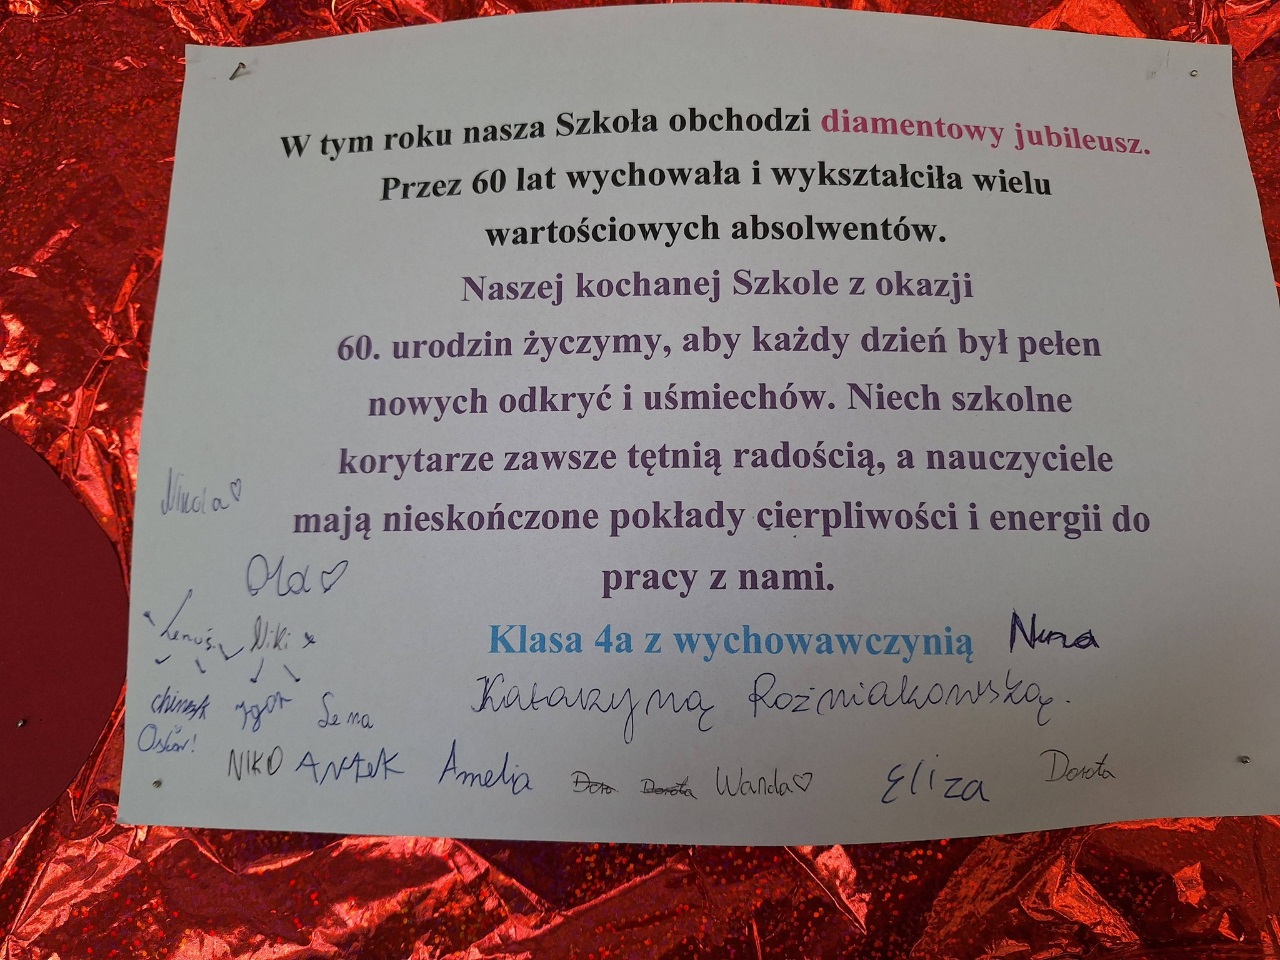 W tym roku nasza Szkoła obchodzi diamentowy jubileusz.
Przez 60 lat wychowała i wykształciła wielu
wartościowych absolwentów.
Naszej kochanej Szkole z okazji
60. urodzin życzymy, aby każdy dzień był pełen
nowych odkryć i uśmiechów. Niech szkolne
korytarze zawsze tętnią radością, a nauczyciele
mają nieskończone pokłady cierpliwości i energii do
pracy z nami.
Klasa 4a z wychowawczynią
Katarzyną Roźniakowską.
Nikola
Ola
Niki
Igor
Lena
NIKO ANTEK Amelia Dora Dorota Wanda Eliza Dorota